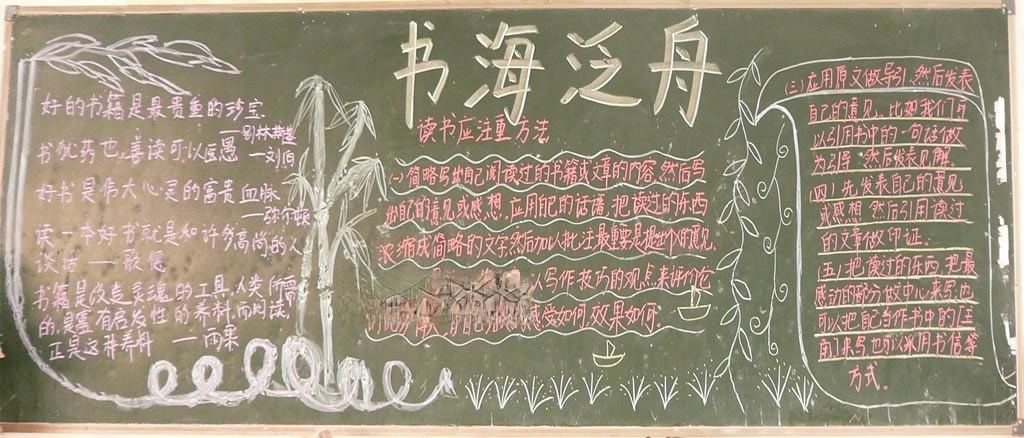 书海泛舟
好的书籍是最贵重的珍宝
—别林燕基
书犹药也,善读可以医愚 —刘向
好书是伟大心灵的富贵血脉
—弥尔顿
读一本好书就是和许多高尚的人
谈话 —歌德
书籍是改造灵魂的工具,人类所需
的,是富有启发性的养料,而阅读,
正是这种养料 —雨果
读书应注重方法
(一)简略写出自己阅读过的书籍或文章的内容,然后写
出自己的意见或感想。应用自己的话语,把读过的东西
浓缩成简略的文字,然后加以批注,最重要是提出个人的意见
以写作技巧的观点来评价论
感受如何,效果如何。
(三)应用原文做导引,然后发表
自己的意见,比如我们可
以引用书中的一句话做
为引导,然后发表见解。
(四)先发表自己的意见
或感想,然后引用读过
的文章做印证。
(五)把读过的东西,把最
感动的部分做中心来写,也
可以把自己当作书中的
来写,也可以采用书信等
方式。